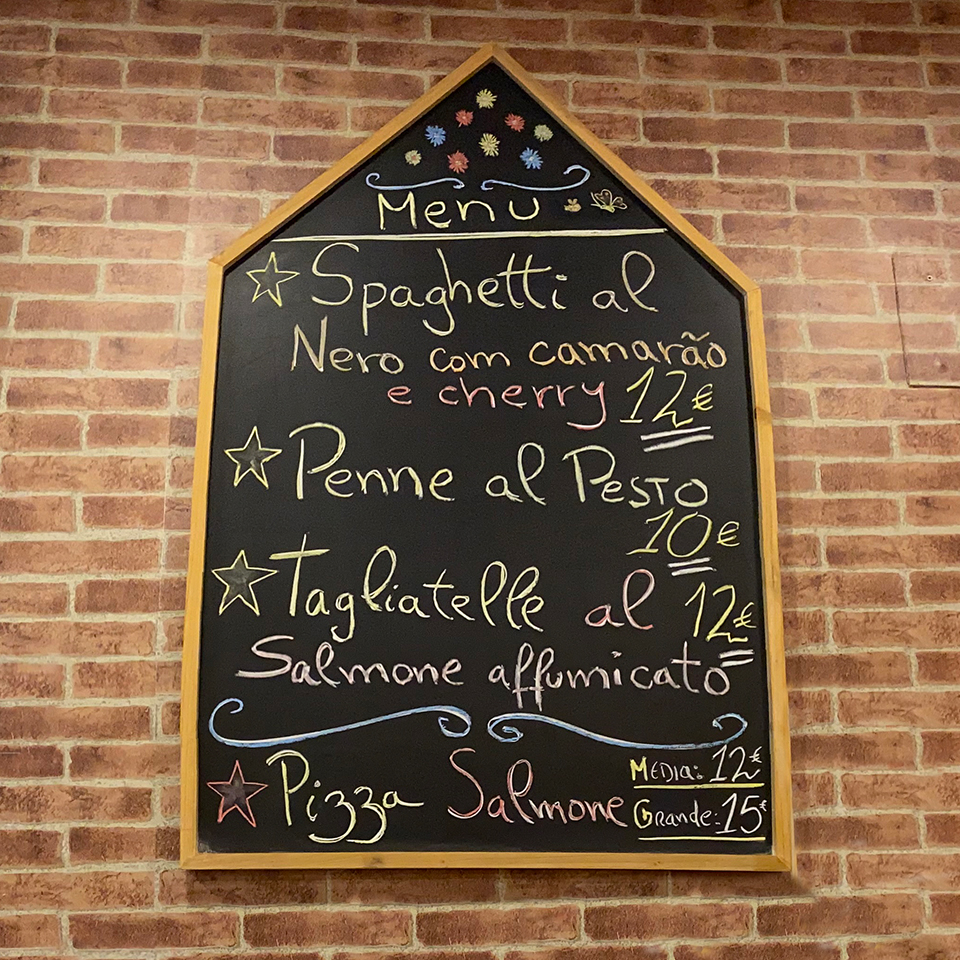 Menu
Spaghetti al
Nero com camarão
e cherry 12€
Penne al Pesto
10€
Tagliatelle al 12€
Salmone affumicato
Pizza Salmone
Média: 12€
Grande: 15€